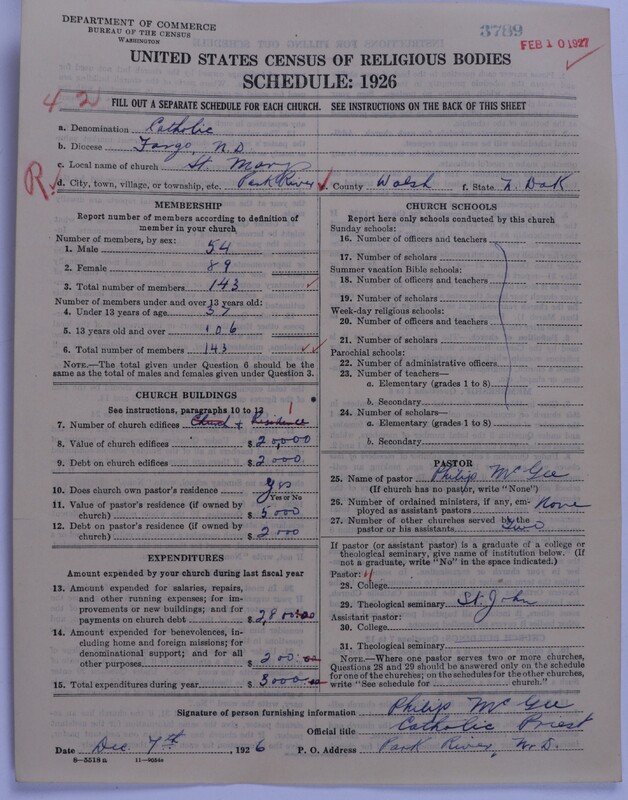 DEPARTMENT OF COMMERCE
BUREAU OF THE CENSUS
WASHINGTON
3789
FEB 10 1927
UNITED STATES CENSUS OF RELIGIOUS BODIES
SCHEDULE: 1926
42
FILL OUT A SEPARATE SCHEDULE FOR EACH CHURCH. SEE INSTRUCTIONS ON THE BACK OF THIS SHEET
a. Denomination Catholic
b. Diocese Fargo, N.D.
c. Local name of church St. Mary
R
d. City, town, village, or township, etc. Park River e. County Walsh f. State N. Dak
MEMBERSHIP
Report number of members according to definition of member in your church
Number of members, by sex:
1. Male 54
2. Female 89
3. Total number of members 143
Number of members under and over 13 years old:
4. Under 13 years of age 37
5. 13 years old and over 106
6. Total number of members 143
NOTE.—The total given under Question 6 should be same as the total of males and females given under Question 3.
CHURCH BUILDINGS
See instructions, paragraphs 10 to 13
1
7. Number of church edifices Church + Residence
8. Value of church edifices $ 20,000
9. Debt on church edifices $ 2000
10. Does church own pastor's residence yes
Yes or No
11. Value of pastor's residence (if owned by church) $ 5000
12. Debt on pastor's residence (if owned by church) $ 2000
EXPENDITURES
Amount expended by your church during last fiscal year
13. Amount expended for salaries, repairs, and other running expenses; for improvements or new buildings; and for payments on church debt $ 2800.00
14. Amount expended for benevolences, including home and foreign missions; for denominational support; and for all other purposes $ 200.00
15. Total expenditures during year $ 3000.00
CHURCH SCHOOLS
Report here only schools conducted by this church
Sunday schools:
16. Number of officers and teachers
17. Number of scholars
Summer vacation Bible schools:
18. Number of officers and teachers
19. Number of scholars
Week-day religious schools:
20. Number of officers and teachers
21. Number of scholars
Parochial schools:
22. Number of administrative officers
23. Number of teachers—
a. Elementary (grades 1 to 8)
b. Secondary
24. Number of scholars—
a. Elementary (grades 1 to 8)
b. Secondary
PASTOR
25. Name of pastor Philip McGee
(If church has no pastor, write "None")
26. Number of ordained ministers, if any, employed as assistant pastors None
27. Number of other churches served by the pastor or his assistants Two
If pastor (or assistant pastor) is a graduate of a college or theological seminary, give name of institution below. (If not a graduate, write "No" in the space indicated.)
Pastor:
28. College "
29. Theological seminary St. John
Assistant pastor:
30. College
31. Theological seminary
NOTE.—Where one pastor serves two or more churches, Questions 28 and 29 should be answered only on the schedule for one of the churches; on the schedules for the other churches, write "See schedule for church."
Signature of person furnishing information Philip McGee
Official title Catholic Priest
Date Dec. 7th, 1926 P. O. Address Park River, N.D.
8—5518 a 11—9054a